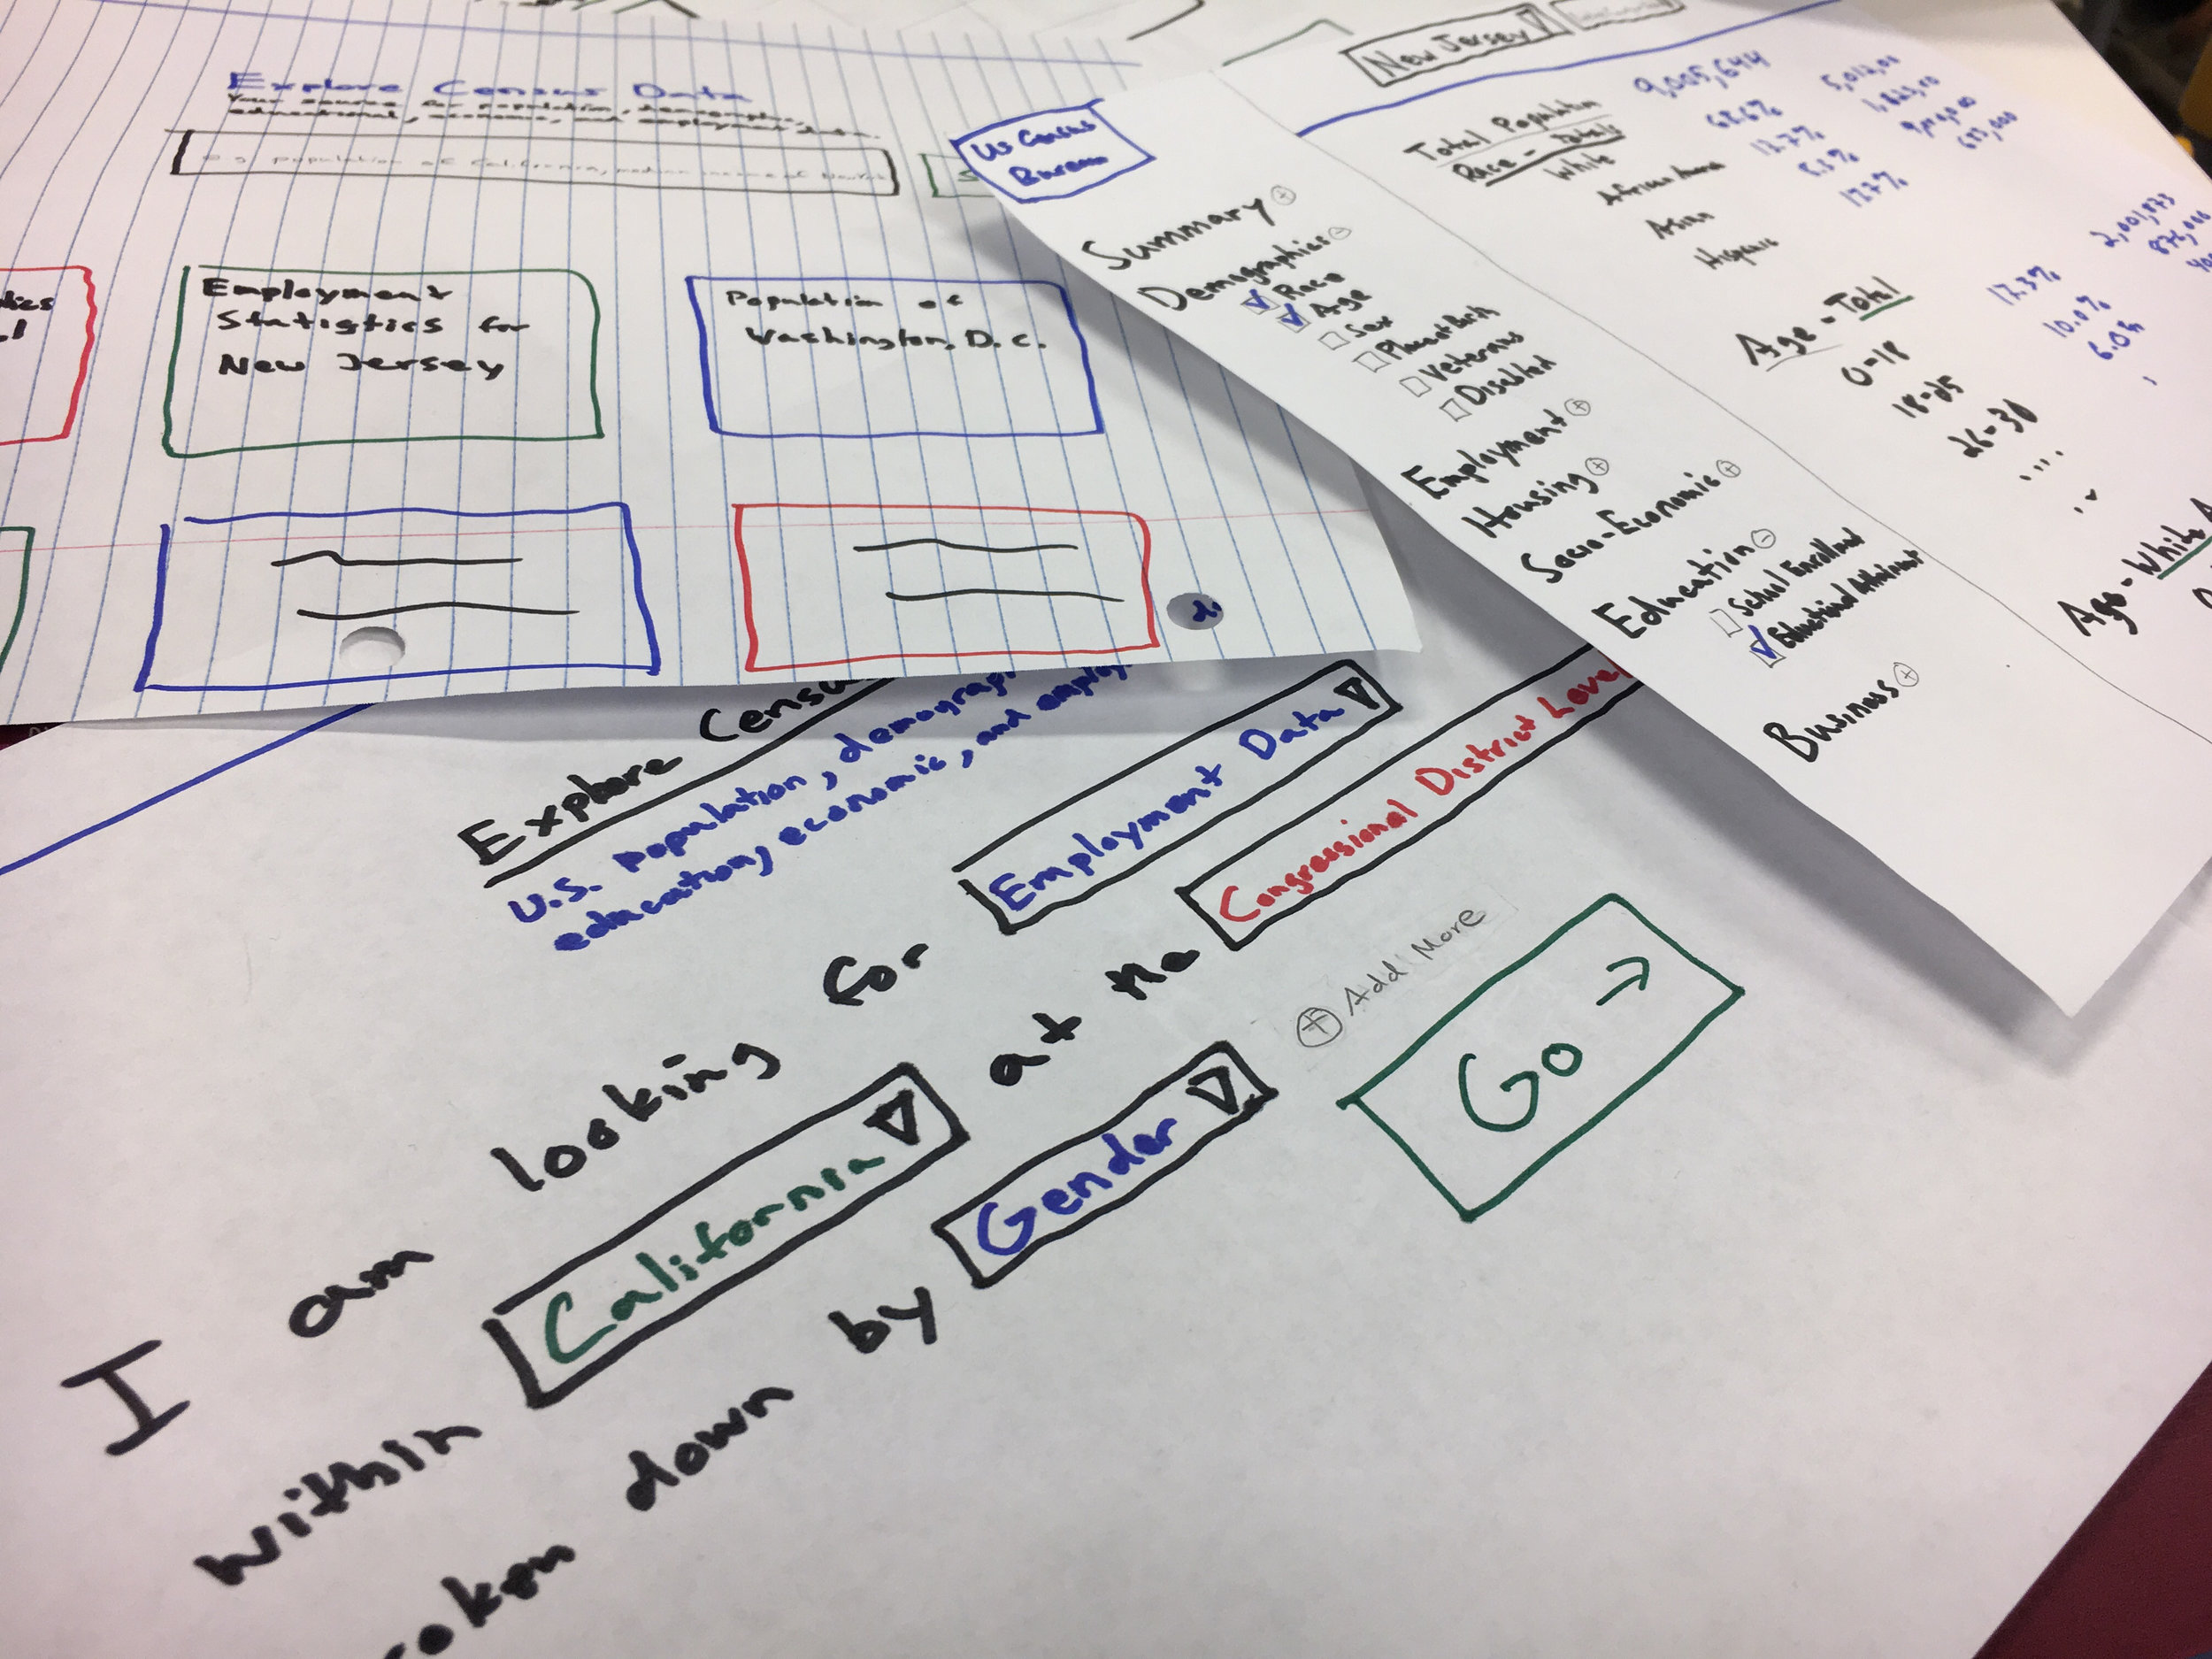 Explore Census Data
Your source for population, demographic,
educational, economic, and employment data.
e.g. population of California, median income of
S
Employment
Statistics for
New Jersey
Population of
Washington, D.C.
US Census
Bureau
Summary +
Demographics -
Race
Age
Sex
Place of Birth
Veterans
Disabled
Employment +
Housing +
Socio-Economic +
Education -
School Enrollment
Educational Attainment
Business +
New Jersey
Total Population 9,005,644
Race - Totals
White 68.6%
African Amer 13.7%
Asian 8.3%
Hispanic 17.7%
Age - Total
0-18 17.3% 2,001,873
18-25 10.0%
26-30 6.0%
....
Age - White
Explore Censu
U.S. population, demograp
education, economic, and employ
I am looking for Employment Data
within California at the Congressional District Level
roken down by Gender
+ Add More
Go →